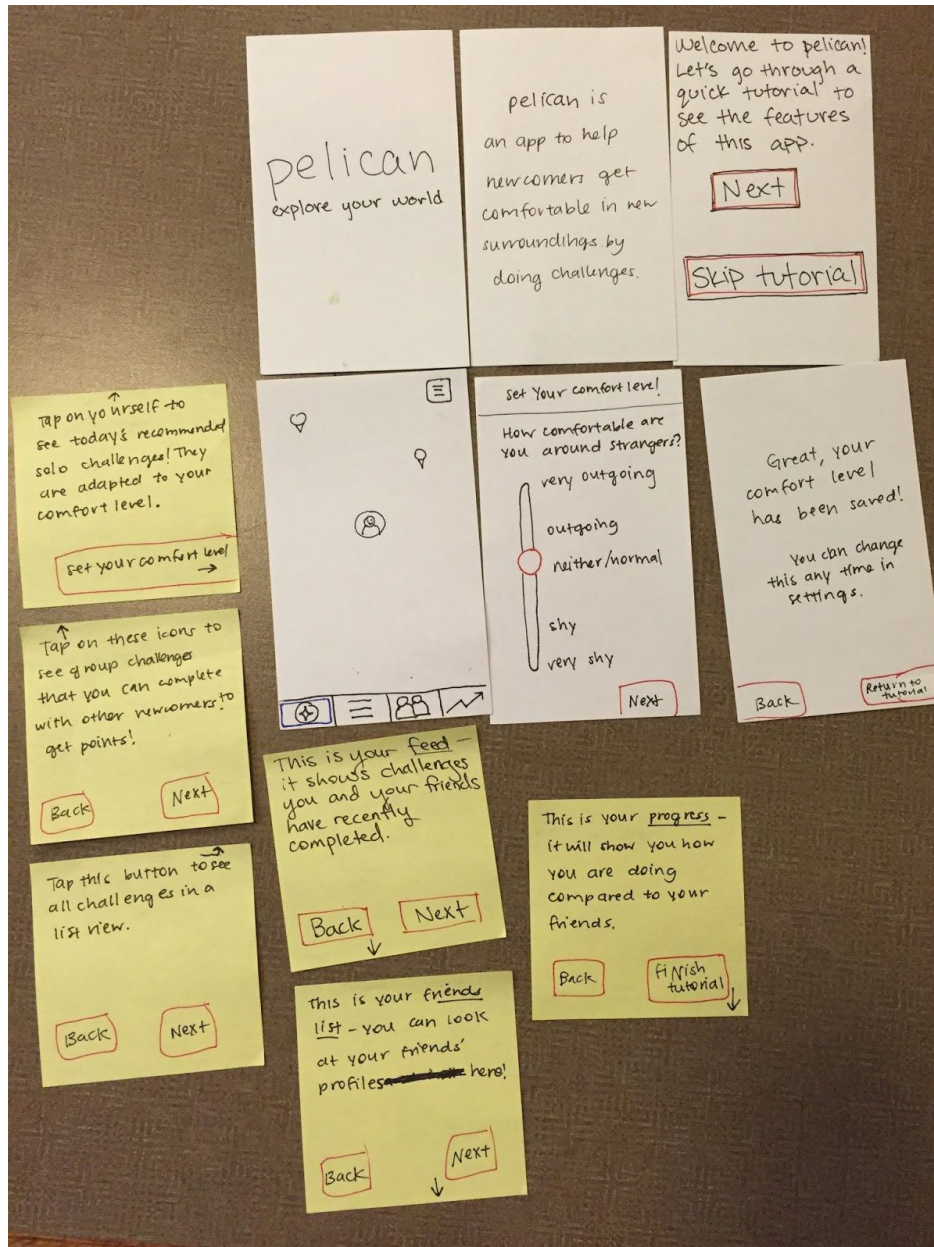 pelican
explore your world
pelican is
an app to help
newcomers get
comfortable in new
surroundings by
doing challenges.
Welcome to pelican!
Let's go through a
quick tutorial to
see the features
of this app.
Next
Skip tutorial
Tap on yourself to
see today's recommended
solo challenges! They
are adapted to your
comfort level.
set your comfort level
set Your comfort level
How comfortable are
you around strangers?
very outgoing
outgoing
neither/normal
shy
very shy
Next
Great, your
comfort level
has been saved!
You can change
this any time in
settings.
Back
Return to
tutorial
Tap on these icons to
see group challenges
that you can complete
with other newcomers to
get points!
Back
Next
This is your feed –
it shows challenges
you and your friends
have recently
completed.
Back
Next
This is your progress –
it will show you how
you are doing
compared to your
friends.
Back
finish
tutorial
Tap this button to see
all challenges in a
list view.
Back
Next
This is your friends
list – you can look
at your friends'
profiles here!
Back
Next